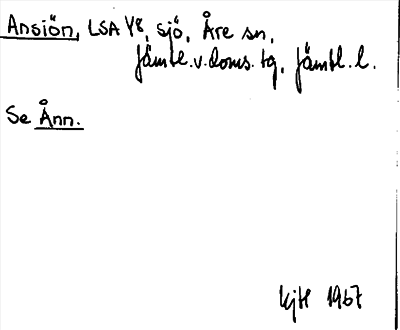 Ansiön, LSA Y8, sjö, Åre sn,
Jämtl.v.doms.tg, Jämtl.l.
Se Ånn.
KjH 1967